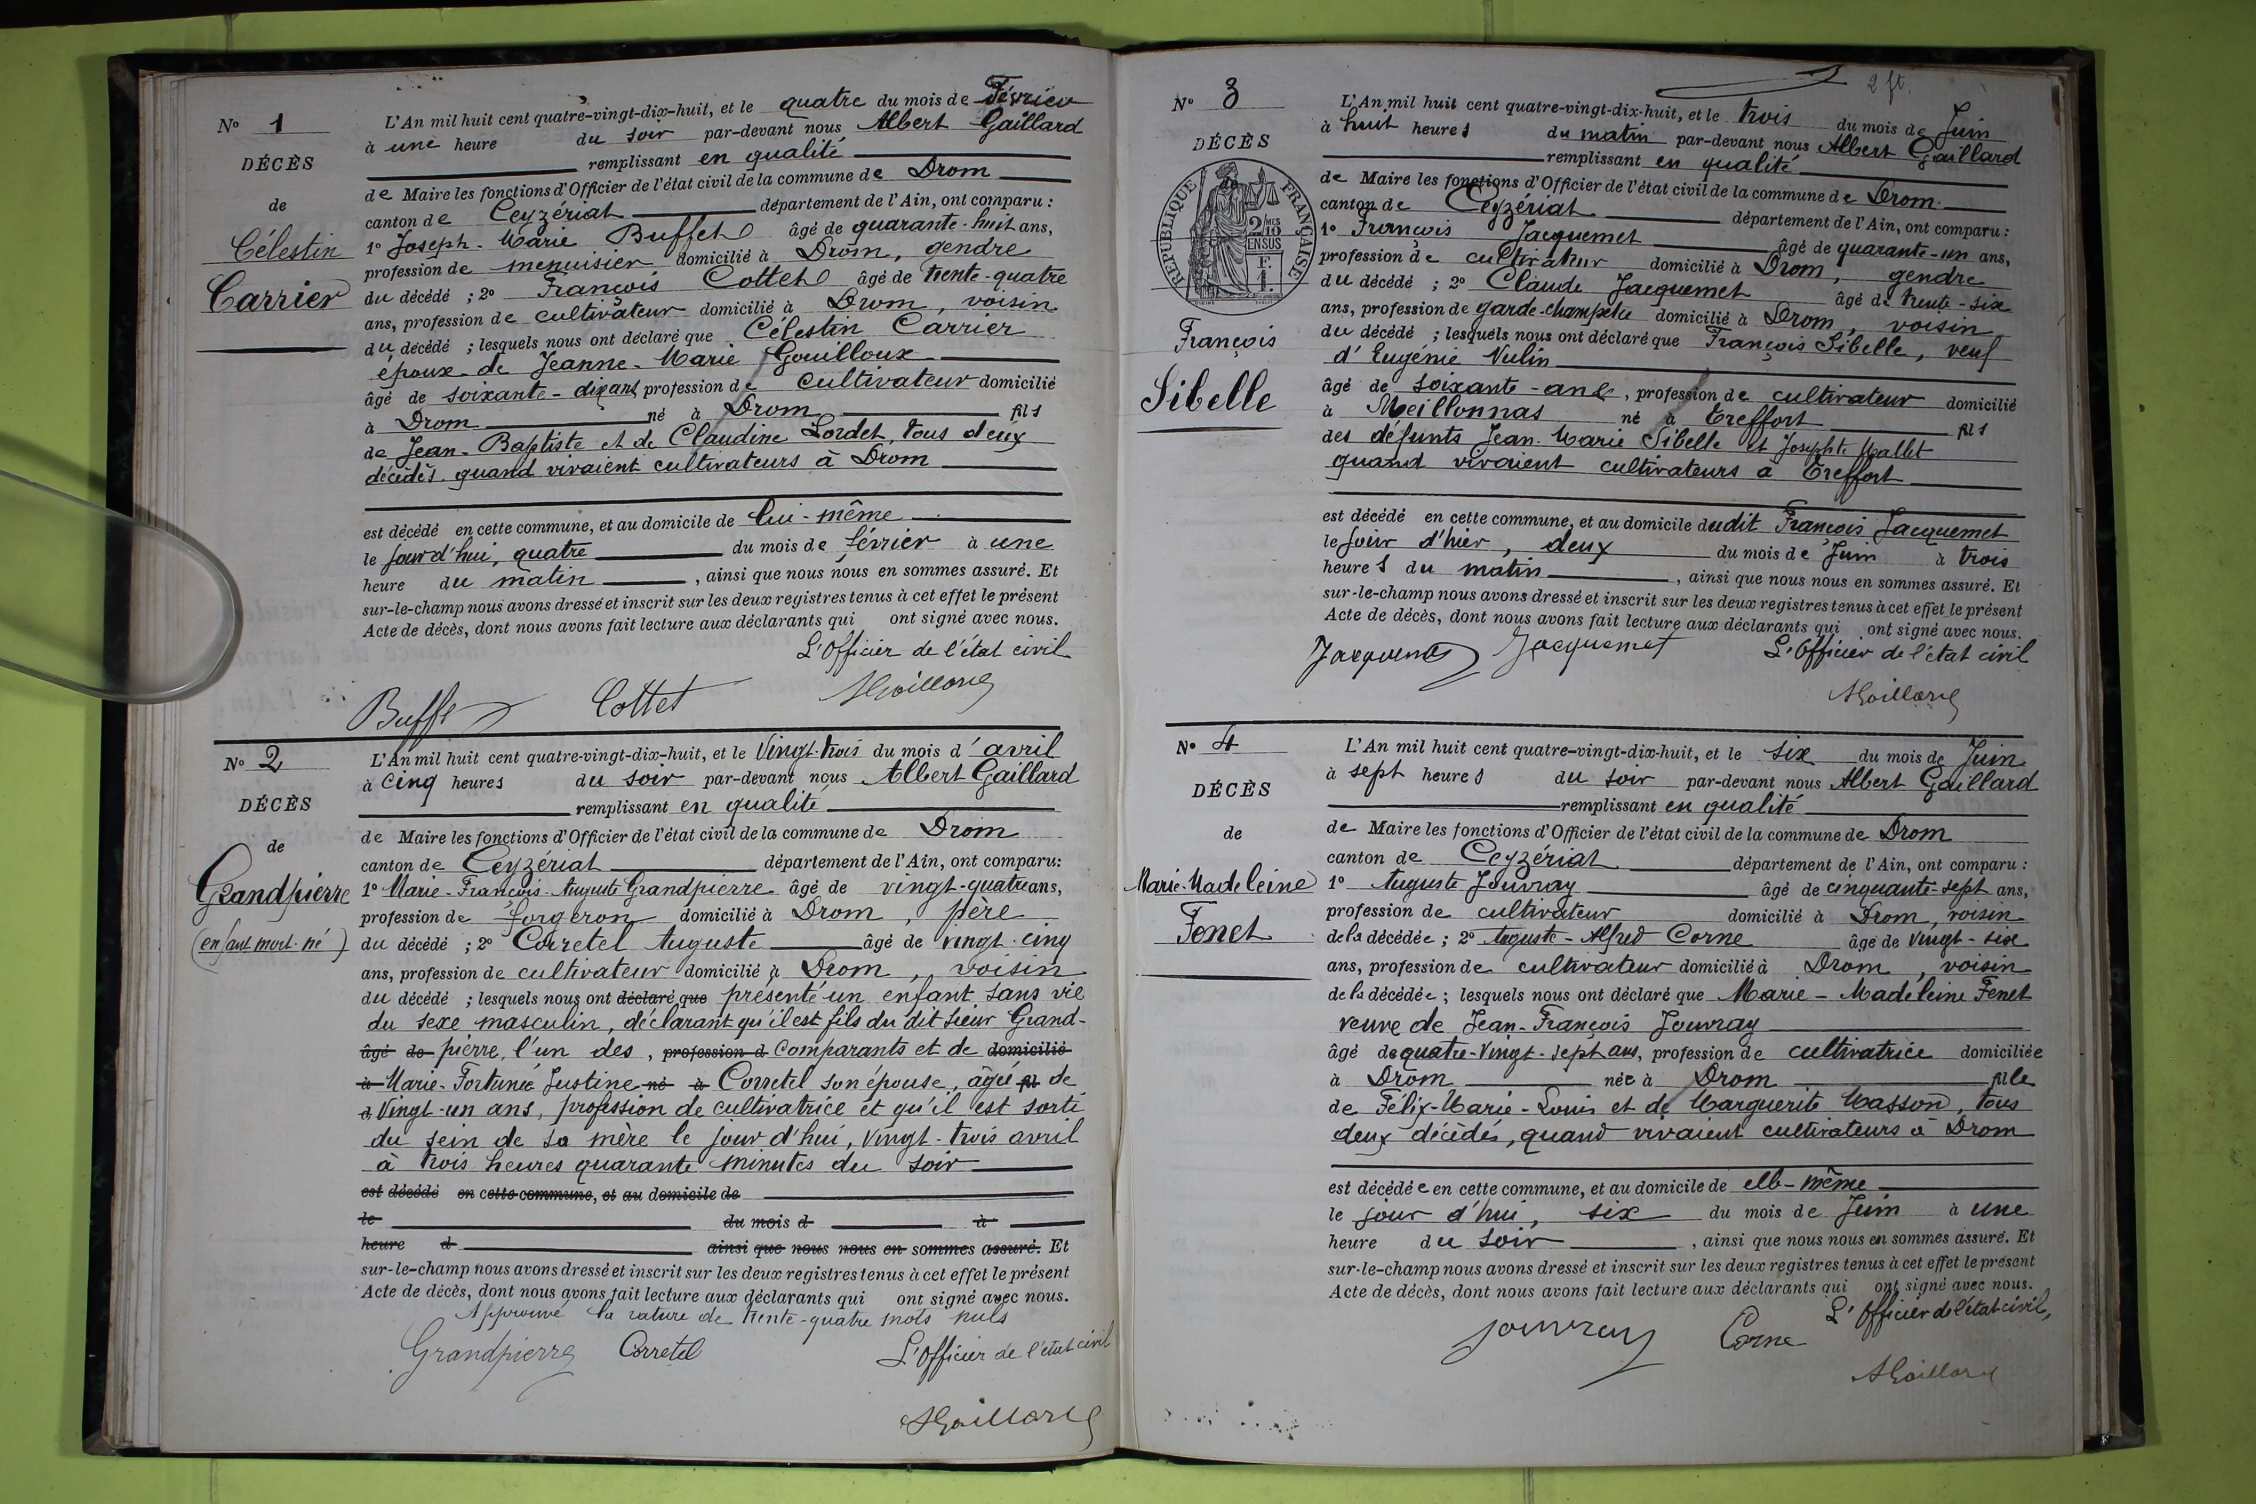 N° 1
DÉCÈS
de
Célestin
Carrier
L'An mil huit cent quatre-vingt-dix-huit, et le quatre du mois de Février
à une heure du soir par-devant nous Albert Gaillard
remplissant en qualité
de Maire les fonctions d'Officier de l'état civil de la commune de Drom
canton de Ceyzériat département de l'Ain, ont comparu :
1° Joseph-Marie Buffet âgé de quarante-huit ans,
profession de menuisier domicilié à Drom, gendre
du décédé ; 2° François Cottet âgé de trente-quatre
ans, profession de cultivateur domicilié à Drom, voisin
du décédé ; lesquels nous ont déclaré que Célestin Carrier
époux de Jeanne-Marie Gouilloux
âgé de soixante-dix ans profession de cultivateur domicilié
à Drom né à Drom fils
de Jean-Baptiste et de Claudine Lordet, tous deux
décédés quand vivaient cultivateurs à Drom
est décédé en cette commune, et au domicile de lui-même
le jour d'hui, quatre du mois de février à une
heure du matin, ainsi que nous nous en sommes assuré. Et
sur-le-champ nous avons dressé et inscrit sur les deux registres tenus à cet effet le présent
Acte de décès, dont nous avons fait lecture aux déclarants qui ont signé avec nous.
L'Officier de l'état civil
Buffet Cottet AGaillard
N° 2
DÉCÈS
de
Grandpierre
(enfant mort-né)
L'An mil huit cent quatre-vingt-dix-huit, et le vingt-trois du mois d'avril
à cinq heures du soir par-devant nous Albert Gaillard
remplissant en qualité
de Maire les fonctions d'Officier de l'état civil de la commune de Drom
canton de Ceyzériat département de l'Ain, ont comparu:
1° Marie-François-Auguste Grandpierre âgé de vingt-quatre ans,
profession de forgeron domicilié à Drom, père
du décédé ; 2° Corretel Auguste âgé de vingt-cinq
ans, profession de cultivateur domicilié à Drom, voisin
du décédé ; lesquels nous ont déclaré que présenté un enfant sans vie
du sexe masculin, déclarant qu'il est fils du dit sieur Grand-
âgé de pierre, l'un des, profession d comparants et de domicilié
à Marie-Fortunée Justine né à Corretel son épouse, âgée fil de
d vingt-un ans, profession de cultivatrice et qu'il est sorti
du sein de sa mère le jour d'hui, vingt-trois avril
à trois heures quarante minutes du soir
est décédé en cette commune, et au domicile de
le du mois d à
heure d ainsi que nous nous en sommes assuré. Et
sur-le-champ nous avons dressé et inscrit sur les deux registres tenus à cet effet le présent
Acte de décès, dont nous avons fait lecture aux déclarants qui ont signé avec nous.
Approuvé la rature de trente-quatre mots nuls
Grandpierre Corretel L'Officier de l'état civil
AGaillard
2 ft.
N° 3
DÉCÈS
RÉPUBLIQUE FRANÇAISE
2 MES
/10
EN SUS
F.
1.
François
Sibelle
L'An mil huit cent quatre-vingt-dix-huit, et le trois du mois de Juin
à huit heures du matin par-devant nous Albert Gaillard
remplissant en qualité
de Maire les fonctions d'Officier de l'état civil de la commune de Drom
canton de Ceyzériat département de l'Ain, ont comparu :
1° François Jacquemet âgé de quarante-un ans,
profession de cultivateur domicilié à Drom, gendre
du décédé ; 2° Claude Jacquemet âgé de trente-six
ans, profession de garde-champêtre domicilié à Drom, voisin
du décédé ; lesquels nous ont déclaré que François Sibelle, veuf
d'Eugénie Vulin
âgé de soixante-ans, profession de cultivateur domicilié
à Meillonnas né à Treffort fils
des défunts Jean-Marie Sibelle et Josephte Mallet
quand vivaient cultivateurs à Treffort
est décédé en cette commune, et au domicile dudit François Jacquemet
le jour d'hier, deux du mois de Juin à trois
heures du matin, ainsi que nous nous en sommes assuré. Et
sur-le-champ nous avons dressé et inscrit sur les deux registres tenus à cet effet le présent
Acte de décès, dont nous avons fait lecture aux déclarants qui ont signé avec nous.
Jacquemet Jacquemet L'Officier de l'état civil
AGaillard
N° 4
DÉCÈS
de
Marie-Madeleine
Fenet
L'An mil huit cent quatre-vingt-dix-huit, et le six du mois de Juin
à sept heures du soir par-devant nous Albert Gaillard
remplissant en qualité
de Maire les fonctions d'Officier de l'état civil de la commune de Drom
canton de Ceyzériat département de l'Ain, ont comparu :
1° Auguste Jouvray âgé de cinquante-sept ans,
profession de cultivateur domicilié à Drom, voisin
de la décédée ; 2° Auguste-Alfred Corne âgé de vingt-six
ans, profession de cultivateur domicilié à Drom, voisin
de la décédée ; lesquels nous ont déclaré que Marie-Madeleine Fenet
veuve de Jean-François Jouvray
âgé de quatre-vingt-sept ans, profession de cultivatrice domiciliée
à Drom née à Drom fille
de Félix-Marie-Louis et de Marguerite Masson, tous
deux décédés, quand vivaient cultivateurs à Drom
est décédée en cette commune, et au domicile de elle-même
le jour d'hui, six du mois de Juin à une
heure du soir, ainsi que nous nous en sommes assuré. Et
sur-le-champ nous avons dressé et inscrit sur les deux registres tenus à cet effet le présent
Acte de décès, dont nous avons fait lecture aux déclarants qui ont signé avec nous.
L'Officier de l'état civil,
Jouvray Corne
AGaillard